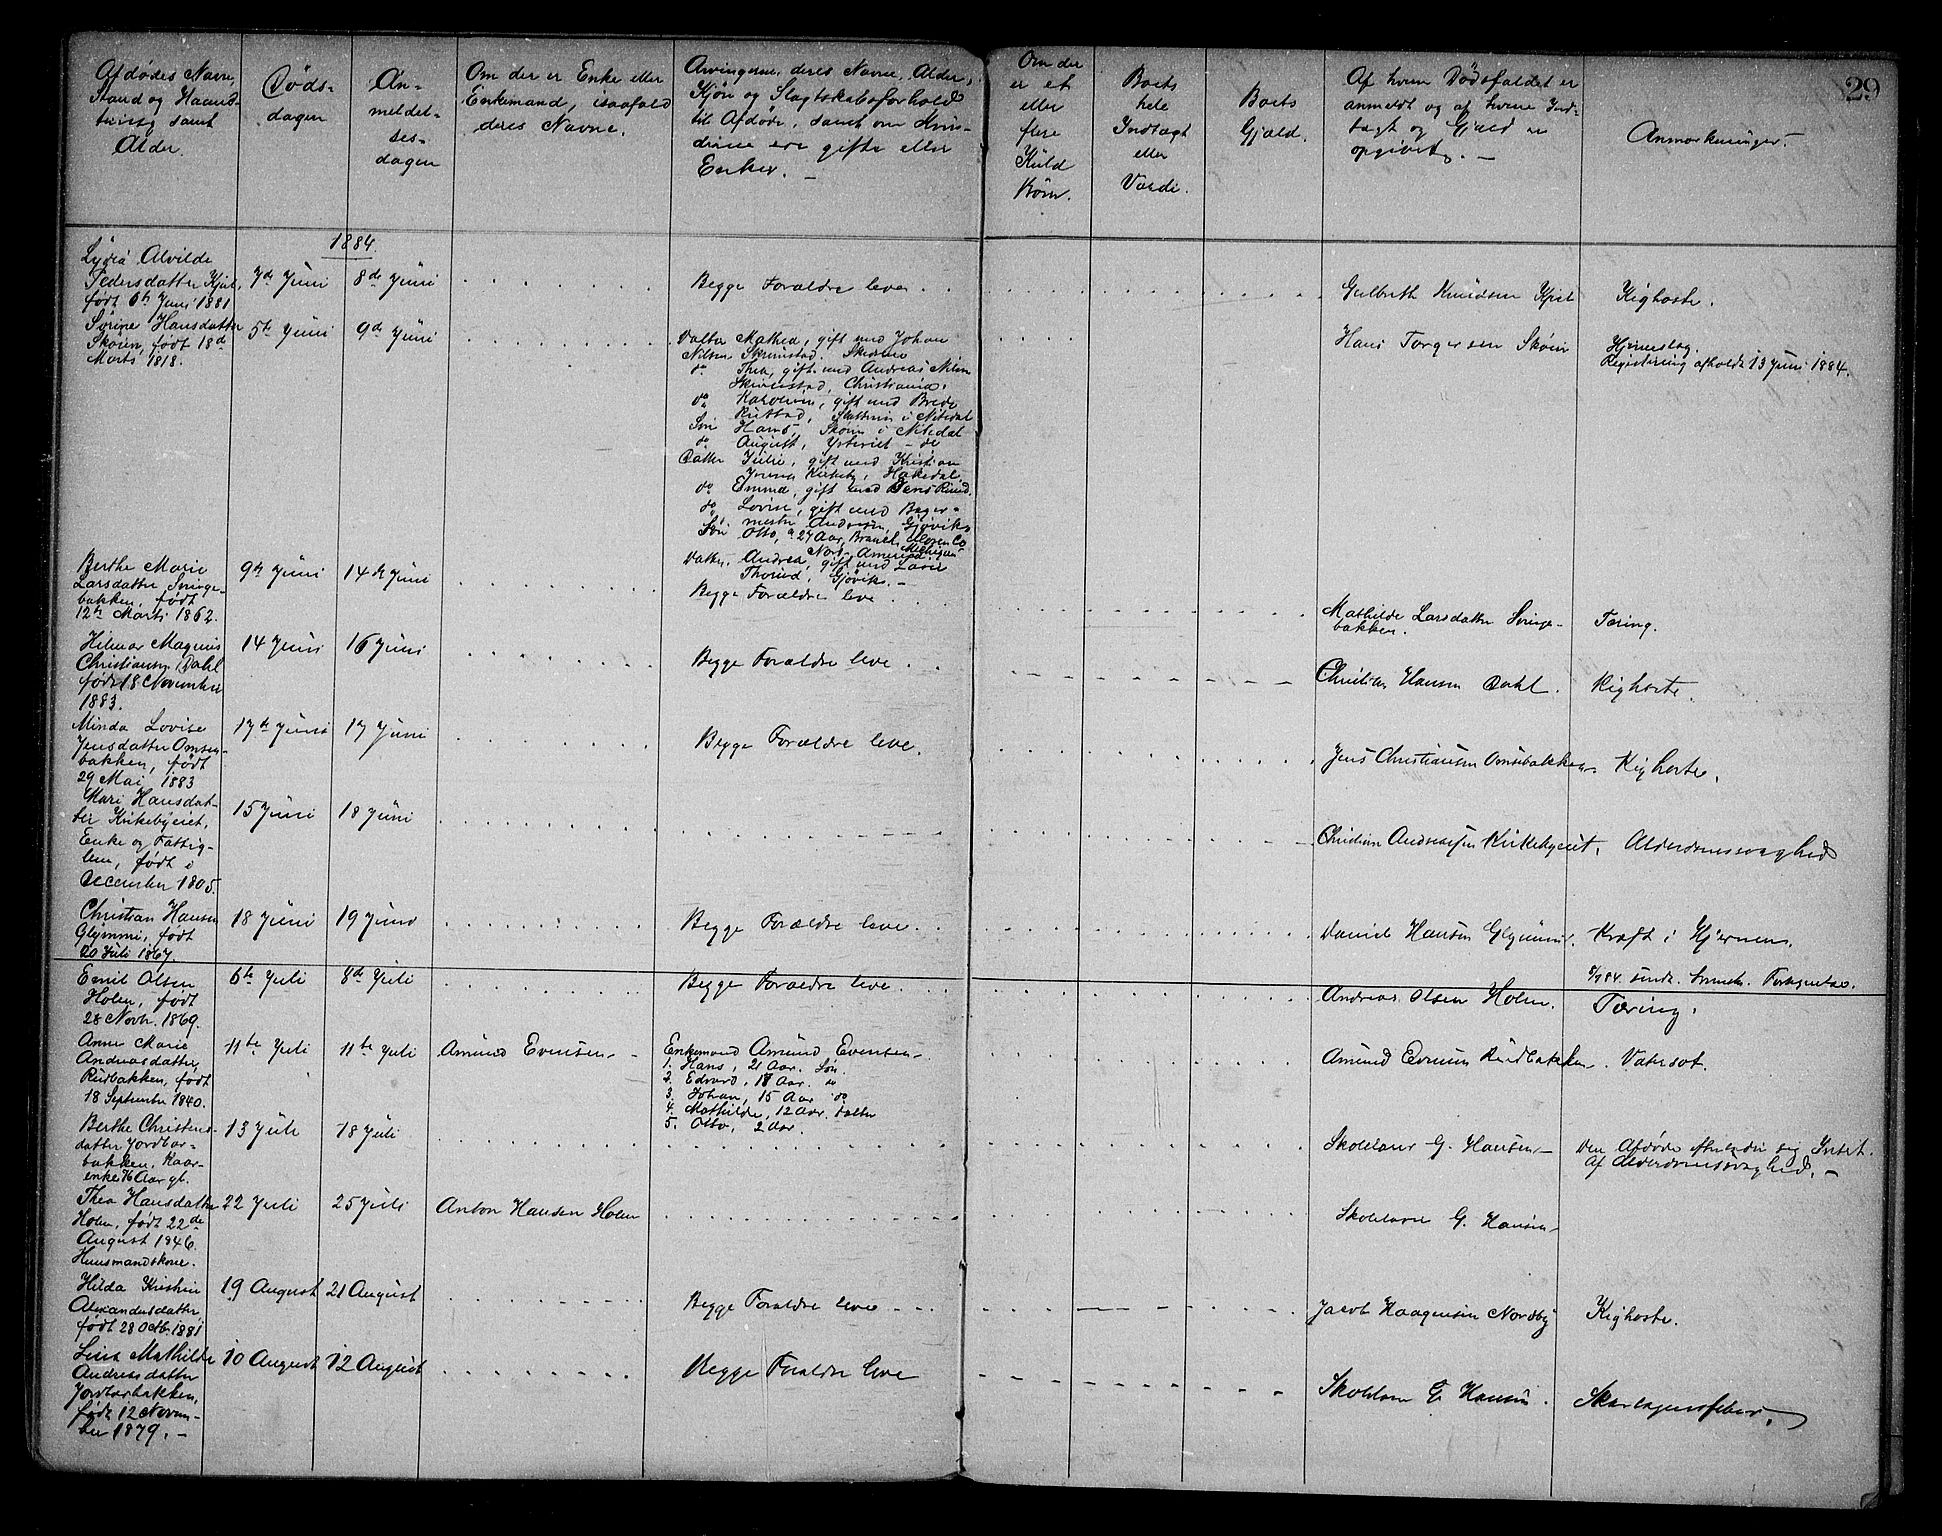 29
Afdødes Navn,
Stand og Haand-
tering samt
Alder.
Døds-
dagen
An-
meldel-
ses-
dagen
Om der er Enke eller
Enkemand, isaafald
deres Navne.
Arvingerne, deres Navne, Alder,
Kjøn og Slagtskabsforhold
til Afdøde, samt om Kvin-
derne ere gifte eller
Enker. —
Om der
er et
eller
flere
Kuld
Børn.
Boets
hele
Indtægt
eller
Værdi.
Boets
Gjæld.
Af hvem Dødsfaldet er
anmeldt og af hvem Ind-
tægt og Gjæld er
opgivet. —
Anmærkninger.
1884.
Lydia Alvilde
Pedersdatter Kjül,
født 6te Juni 1881
7de Juni
8de Juni
Begge Forældre lever
Gulbrith Knudsen Kjül
Kighoste.
Sørine Hansdatter
Skøien, født 18de
Marts 1818.
5te Juni
9de Juni
Datter Mathea, gift med Johan
Nilsen Skrimstad. Skedsmo
do Thea, gift med Andreas Nilsen
Skrimstad, Christiania.
do Karoline, gift med Brede
Rustad, Slattum i Nitedal
Søn Hans, Skøien i Nitedal
do August, Ysteriet - do
Datter Julie, gift med Kristian
Jonsen Kirkeby, Hakedal.
do Emma, gift med Jens Ruud.
do Lovise, gift med Bager-
mester Andersen, Gjøvik
Søn Otto, 27 Aar, Branch, Mason Co
Michigan
Nord-Amerika.
Datter Andrea, gift med Lars
Thorud, Gjøvik. —
Hans Torgersen Skøien
Hjerneslag.
Registrering afholdt 13 Juni 1884.
Berthe Marie
Larsdatter Svinge-
bakken, født
12te Marts 1862.
9de Juni
14de Juni
Begge Forældre leve
Mathilde Larsdatter Svinge-
bakken.
Tæring.
Hilmar Magnus
Christiansen Dahl
født 18 November
1883.
14 Juni
16 Juni
Begge Forældre leve
Christian Hansen Dahl.
Kighoste.
Minda Lovise
Jensdatter Omsen-
bakken, født
29 Mai 1883
17de Juni
17 Juni
Begge Forældre leve.
Jens Christiansen Omsebakken
Kighoste.
Mari Hansdat-
ter Kirkebyeiet,
Enke og Fattig-
lem, født i
December 1805.
15 Juni
18 Juni
Christian Andreassen Kirkebyeiet.
Alderdomssvaghed
Christian Hansen
Glømmi, født
20 Juli 1867.
18 Juni
19 Juni
Begge Forældre leve.
Daniel Hansen Glømmi.
Kræft i Hjernen.
Emil Olsen
Holm, født
28 Novb. 1869.
6te Juli
8de Juli
Begge Forældre leve
Andreas Olsen Holm.
Tæring.
Anne Marie
Andreasdatter
Rudbakken, født
18 September 1840.
11te Juli
11te Juli
Amund Evensen —
Enkemand Amund Evensen —
1. Hans, 21 Aar. Søn.
2. Edvard, 17 Aar. do
3. Johan, 15 Aar do
4. Mathilde, 12 Aar. Datter
5. Otto, 2 Aar.
Amund Evensen Rudbakken.
Vatersot.
Berthe Christens-
datter Jordbær-
bakken. Kaar-
enke 76 Aar gl.
13 Juli
18 Juli
Skolelærer G. Hansen —
Den Afdøde efterlader sig Intet.
Af Alderdomssvaghed. —
Thea Hansdatter
Holm, født 22de
August 1846.
Huusmandskone.
22 Juli
25 Juli
Anton Hansen Holm
Skolelærer G. Hansen —
Hilda Kristine
Alexandersdatter
født 28 Octb. 1881
19 August
21 August
Begge Forældre leve
Jacob Haagensen Nordby
Kighoste.
Lina Mathilde
Andreasdatter
Jordbærbakken,
født 12 Novem-
ber 1879. —
10 August
12 August
Begge Forældre leve
Skolelærer G. Hansen.
Skarlagensfeber.